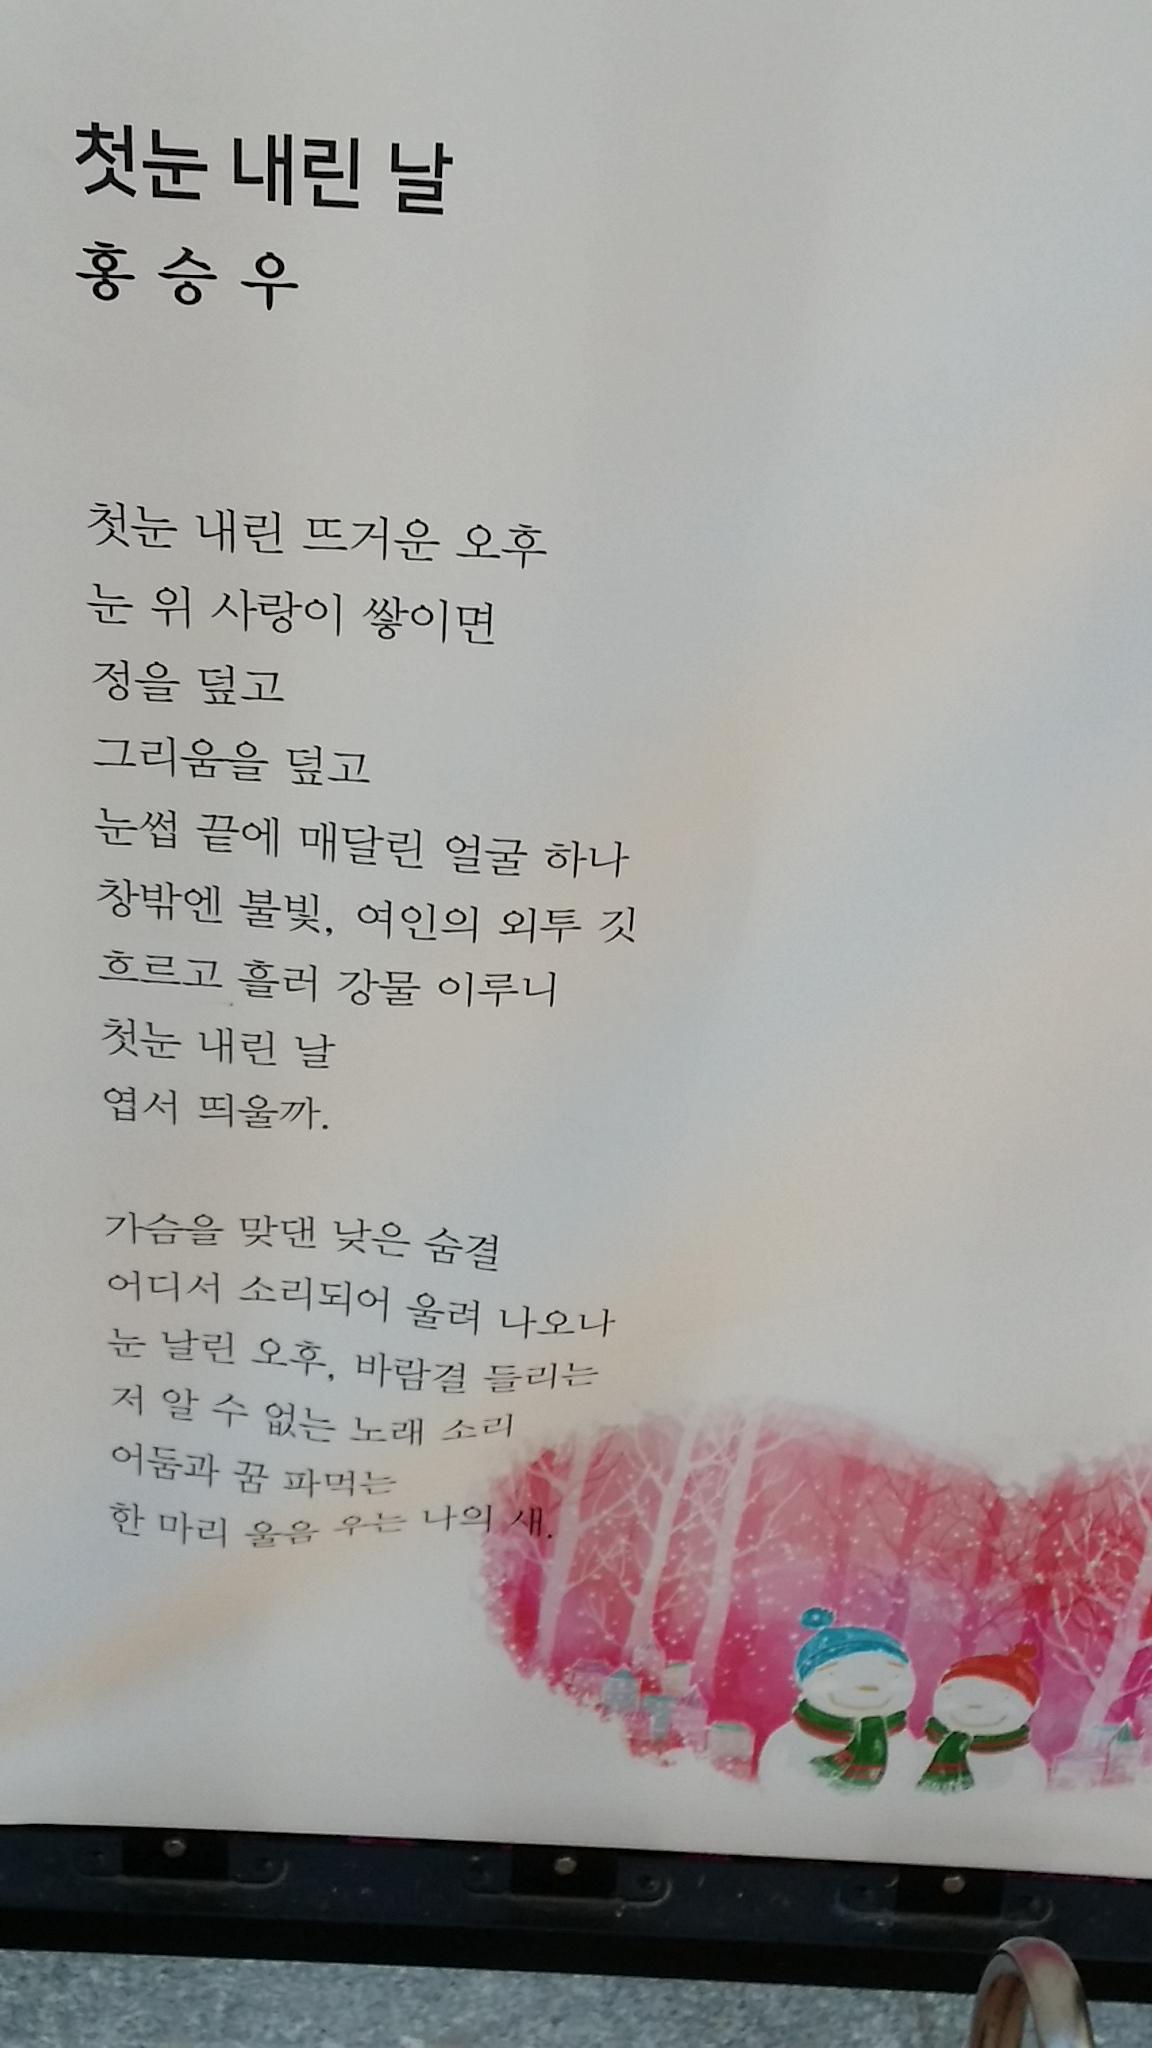 첫눈 내린 날
홍 승 우
첫눈 내린 뜨거운 오후
눈 위 사랑이 쌓이면
정을 덮고
그리움을 덮고
눈썹 끝에 매달린 얼굴 하나
창밖엔 불빛, 여인의 외투 깃
흐르고 흘러 강물 이루니
첫눈 내린 날
엽서 띄울까.
가슴을 맞댄 낮은 숨결
어디서 소리되어 울려 나오나
눈 날린 오후, 바람결 들리는
저 알 수 없는 노래 소리
어둠과 꿈 파먹는
한 마리 울음 우는 나의 새.